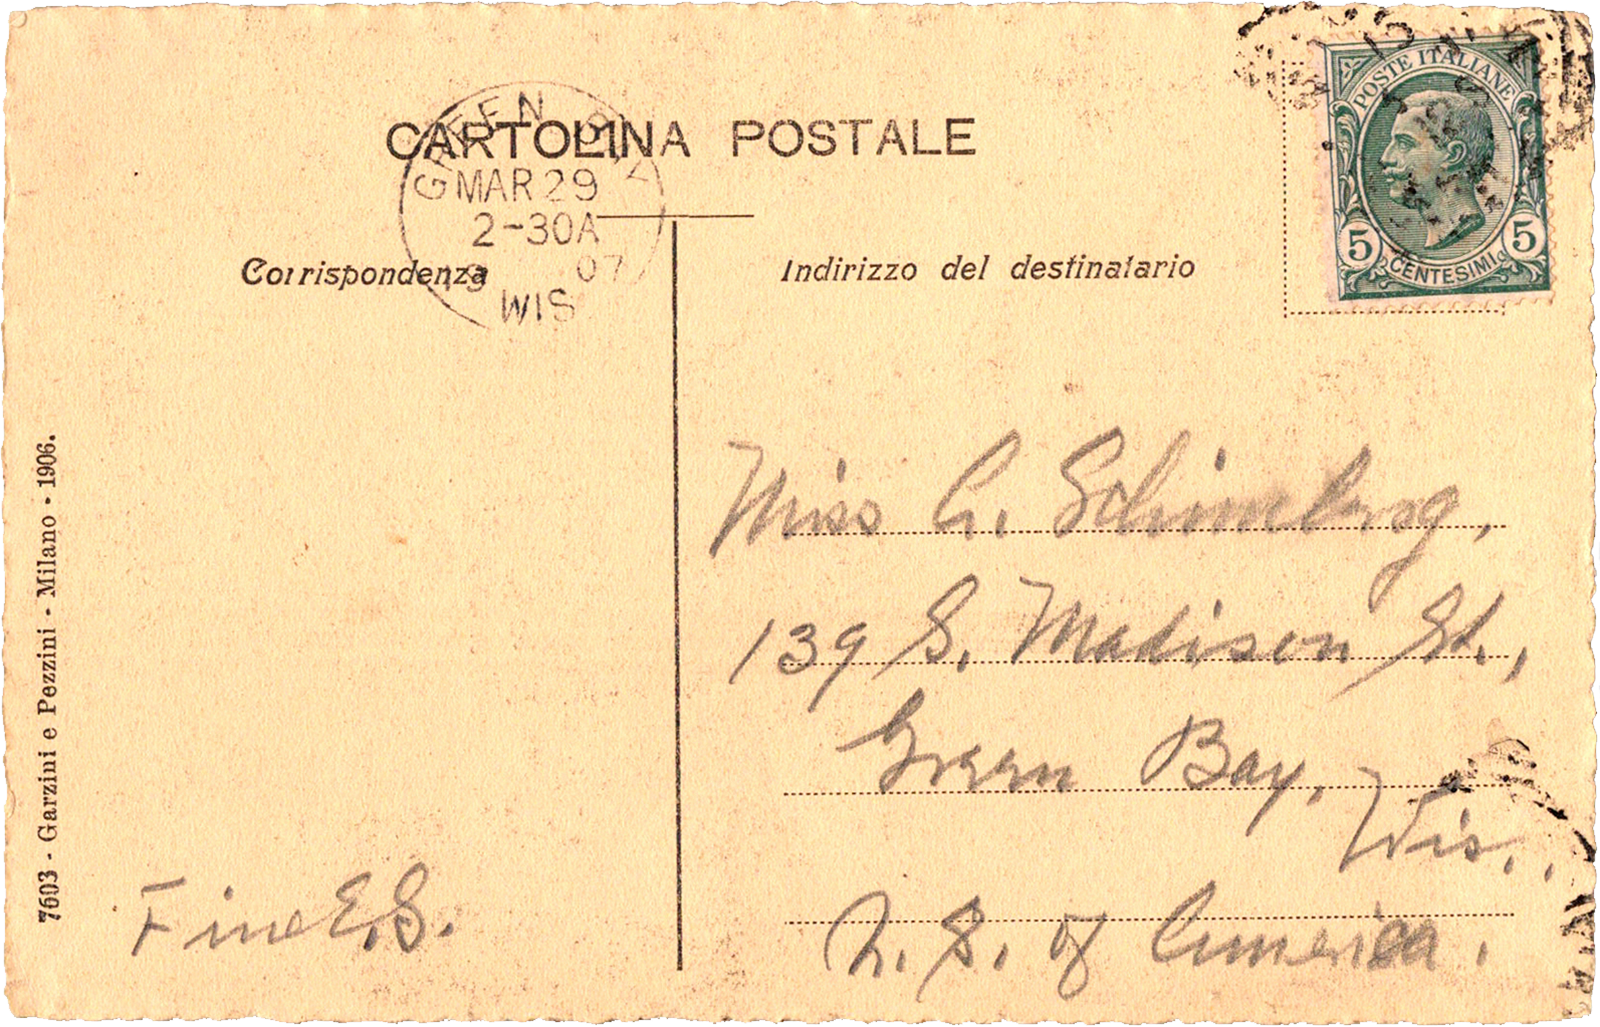 CARTOLINA POSTALE
GREEN BAY
MAR 29
2-30A
19 07
WIS
POSTE ITALIANE
5 5
CENTESIMI
Corrispondenza
Indirizzo del destinatario
7603 - Garzini e Pezzini - Milano - 1906.
Miss C. Schimelsog,
139 S. Madison St.,
Green Bay,
Wis.
U. S. of America.
Fine E.S.